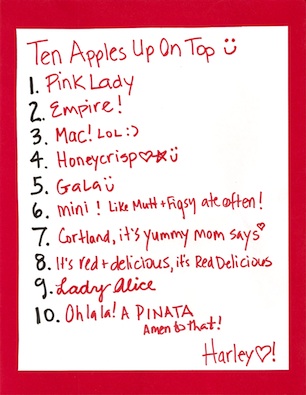 Ten Apples Up On Top Ü
1. Pink Lady
2. Empire!
3. Mac! LOL :)
4. Honeycrisp♡☆Ü
5. Gala Ü
6. mini! Like Mutt + Figsy ate often!
7. Cortland, it's yummy mom says♡
8. It's red + delicious, it's Red Delicious
9. Lady Alice
10. Oh la la! A PINATA
Amen to that!
Harley♡!